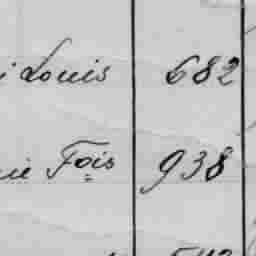 Louis 682
Fois 938